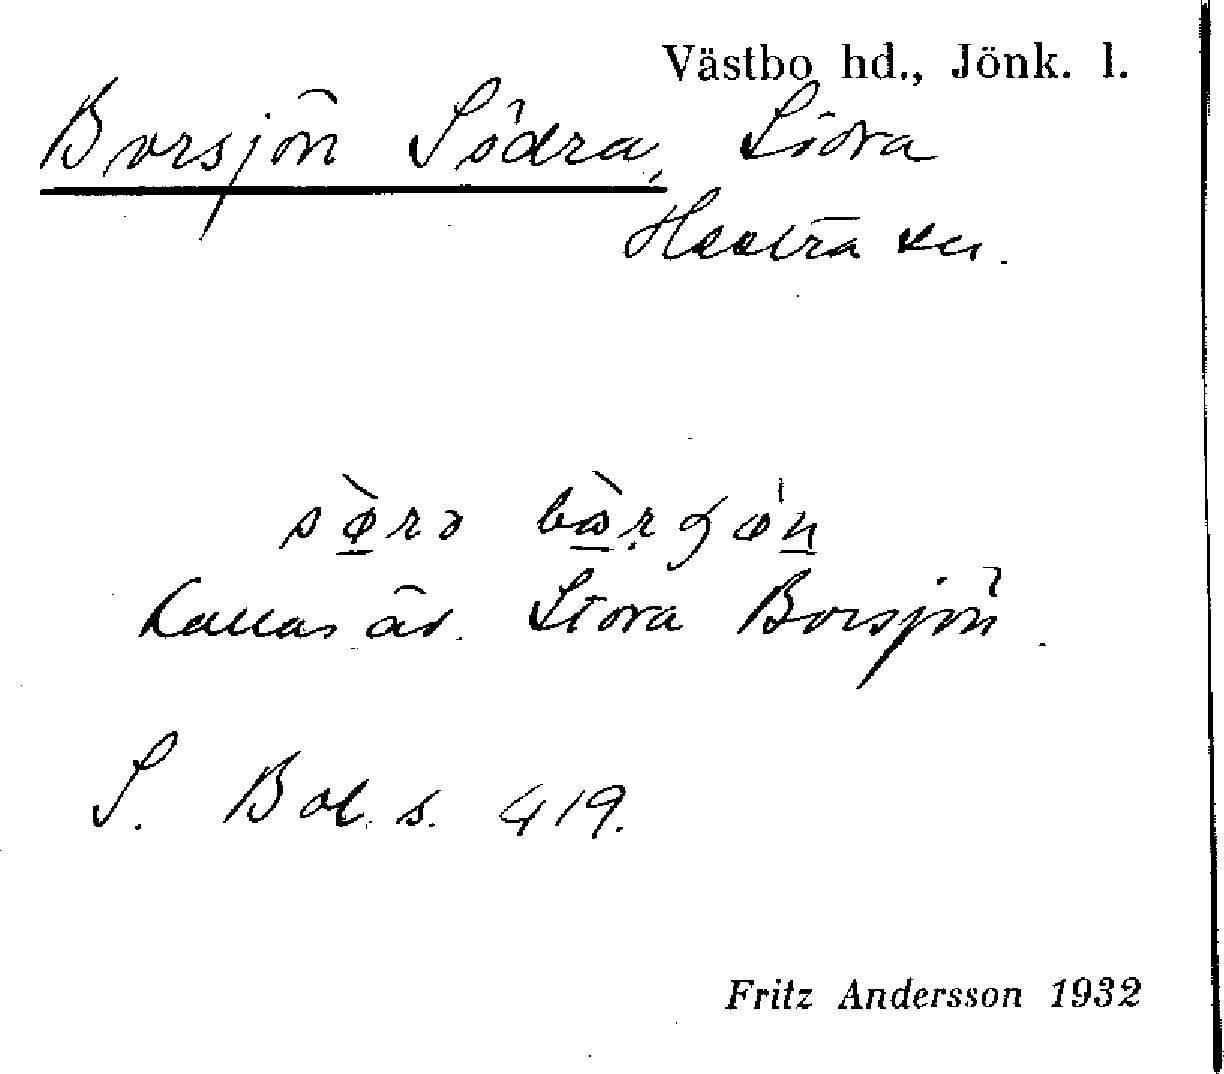 Västbo hd., Jönk. l.
Borsjön Södra, Stora
Hestra sn.
Kallas äv. Stora Borsjön.
S. Bol. s. 419.
Fritz Andersson 1932